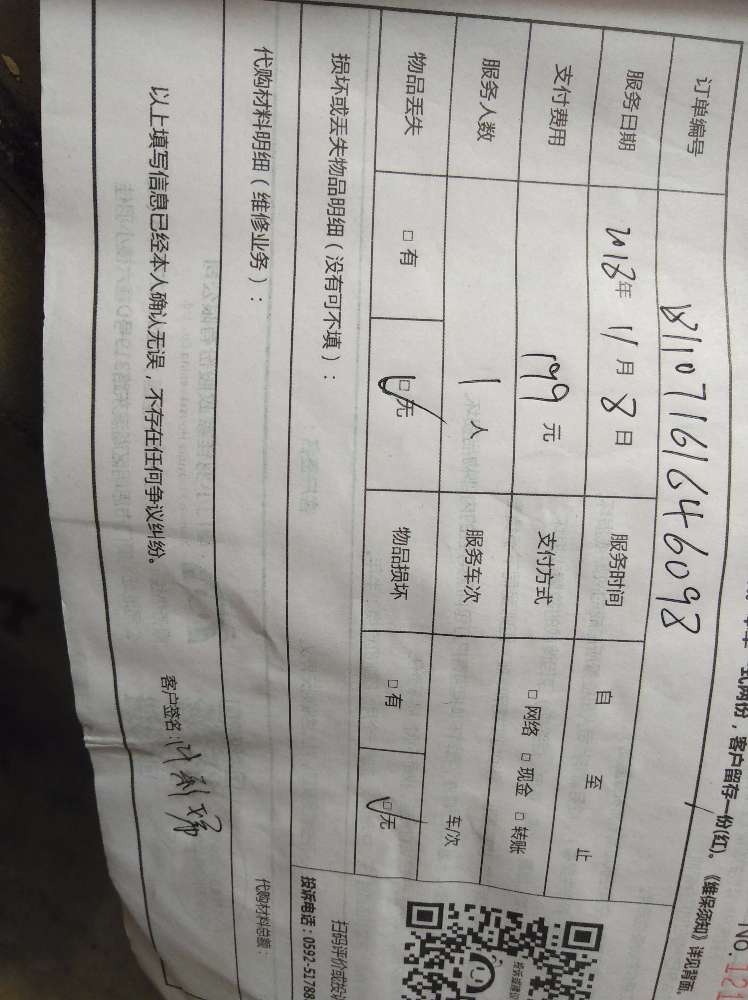 一式两份，客户留存一份(红)。《维保须知》详见背面。
NO.121
订单编号 81107161646098
服务日期 2018年 11月 8日 服务时间 自 至 止
支付费用 199元 支付方式 □网络 □现金 □转账
服务人数 1人 服务车次 车/次
物品丢失 □有 □无 物品损坏 □有 □无
损坏或丢失物品明细（没有可不填）：
扫码评价或投
投诉电话：0592-51788
代购材料明细（维修业务）： 代购材料总额：
以上填写信息已经本人确认无误，不存在任何争议纠纷。
客户签名：叶